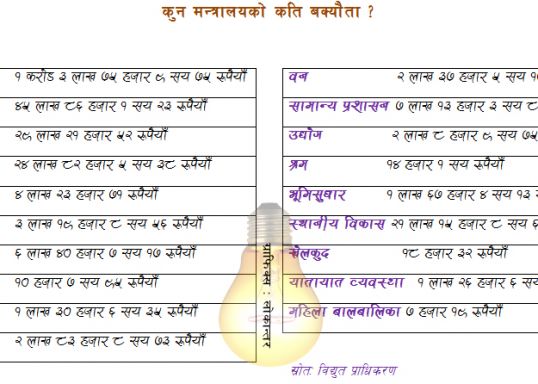 कुन मन्त्रालयको कति बक्यौता ?
१ करोड ३ लाख ७५ हजार ९ सय ७५ रूपैयाँ
४५ लाख ८६ हजार १ सय २३ रूपैयाँ
२९ लाख २१ हजार ५२ रूपैयाँ
२४ लाख ८२ हजार ५ सय ३८ रूपैयाँ
४ लाख २३ हजार ७१ रूपैयाँ
३ लाख १९ हजार ८ सय ५६ रूपैयाँ
६ लाख ४० हजार ७ सय १७ रूपैयाँ
१० हजार ७ सय ९५ रूपैयाँ
१ लाख ३० हजार ६ सय ३५ रूपैयाँ
२ लाख ८३ हजार ८ सय ७३ रूपैयाँ
वन २ लाख ३७ हजार ५ सय
सामान्य प्रशासन ७ लाख १३ हजार ३ सय
उद्योज २ लाख ८ हजार ९ सय ७५
श्रम १४ हजार १ सय रूपैयाँ
भूमिसुधार १ लाख ६७ हजार ४ सय १३
स्थानीय विकास २१ लाख १५ हजार ८ सय
खेलकुद १८ हजार ३२ रूपैयाँ
यातायात व्यवस्था १ लाख २६ हजार ६ सय
महिला बालबालिका ७ हजार १९ रूपैयाँ
ग्राफिक्स : लोकान्तर
स्रोतः विद्युत प्राधिकरण